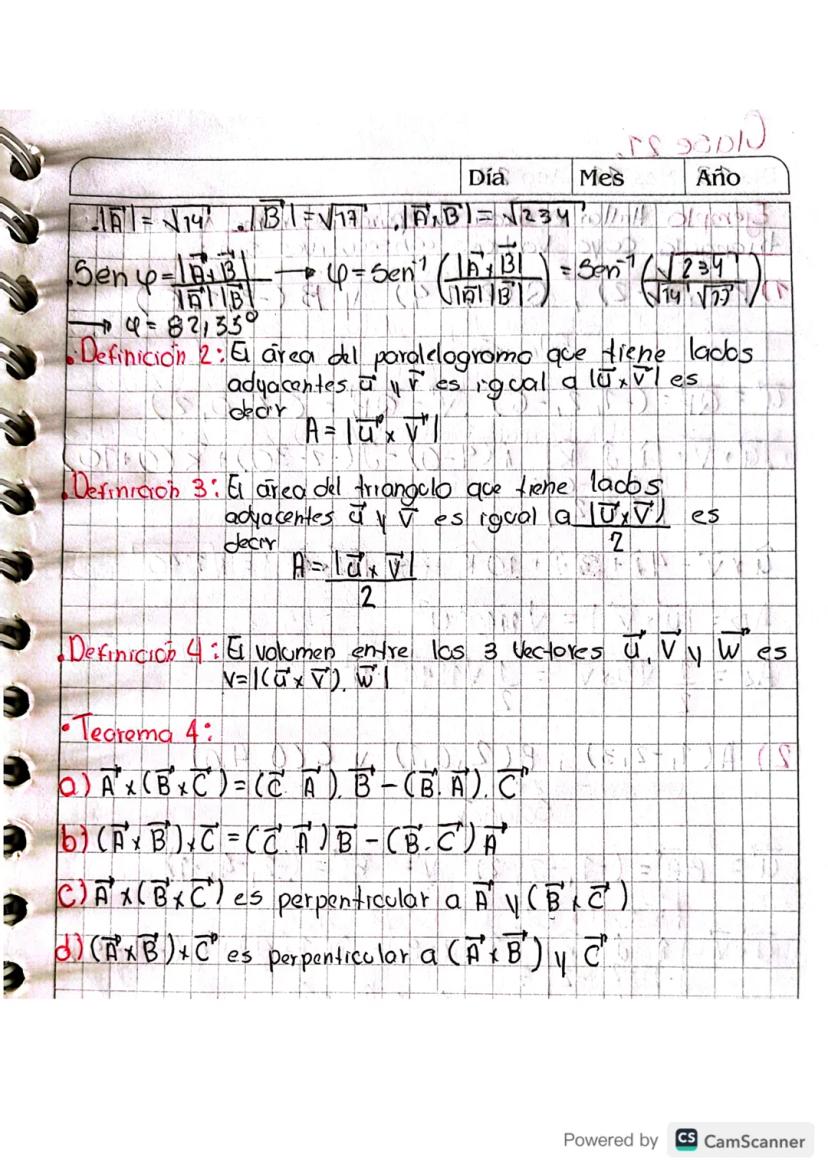 Día Mes Año
.|A⃗| = √14 . |B⃗| = √17 . |A⃗×B⃗| = √234
.Sen φ = |A⃗×B⃗| / |A⃗| |B⃗| → φ = Sen⁻¹ (|A⃗×B⃗| / |A⃗| |B⃗|) = Sen⁻¹ (√234 / √14 √17)
→ φ = 82,33°
.Definición 2: El área del paralelogramo que tiene lados
adyacentes u⃗ y v⃗ es igual a |u⃗×v⃗| es
decir
A = |u⃗ × v⃗|
.Definición 3: El área del triangulo que tiene lados
adyacentes u⃗ y v⃗ es igual a |u⃗×v⃗| / 2 es
decir
A = |u⃗ × v⃗| / 2
.Definición 4: El volumen entre los 3 vectores u⃗, v⃗ y w⃗ es
V=|(u⃗ × v⃗). w⃗|
• Teorema 4:
a) A⃗ × (B⃗ × C⃗) = (C⃗. A⃗). B⃗ − (B⃗. A⃗). C⃗
b) (A⃗ × B⃗) × C⃗ = (C⃗. A⃗) B⃗ − (B⃗. C⃗) A⃗
c) A⃗ × (B⃗ × C⃗) es perpenticular a A⃗ y (B⃗ × C⃗)
d) (A⃗ × B⃗) × C⃗ es perpenticular a (A⃗ × B⃗) y C⃗
Powered by CS CamScanner